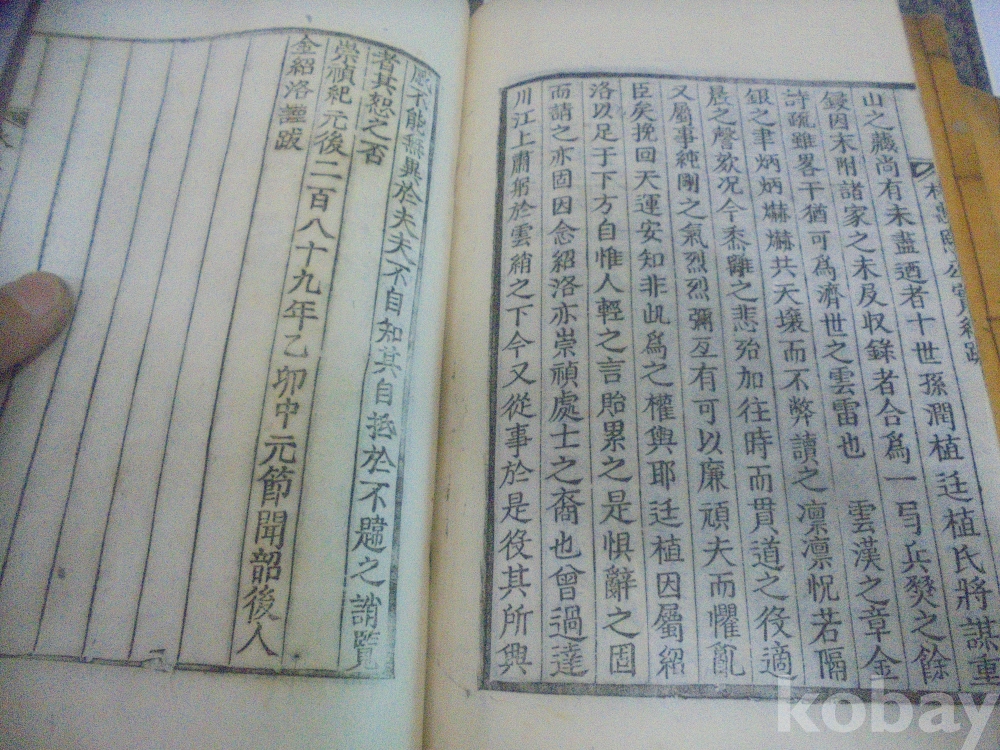 山之藏尚有未盡迺者十世孫潤植廷植氏將謀重
鋟因末附諸家之未及收錄者合爲一弓兵燹之餘
詩疏雖畧干猶可爲濟世之雲雷也　雲漢之章金
銀之聿炳炳爀爀共天壤而不弊讀之凛凛怳若隔
晨之謦欬况今黍離之悲殆加往時而貫道之役適
又屬事純剛之氣烈烈彌亙有可以廉頑夫而懼亂
臣矣挽回天運安知非此爲之權輿耶廷植因屬紹
洛以足于下方自惟人輕之言貽累之是惧辭之固
而請之亦固因念紹洛亦崇禎處士之裔也曾過達
川江上肅躬於雲綃之下今又從事於是役其所興
感不能無異於夫夫不自知其自抵於不韙之誚覽
者其恕之否
崇禎紀元後二百八十九年乙卯中元節聞韶後人
金紹洛謹跋
kobay